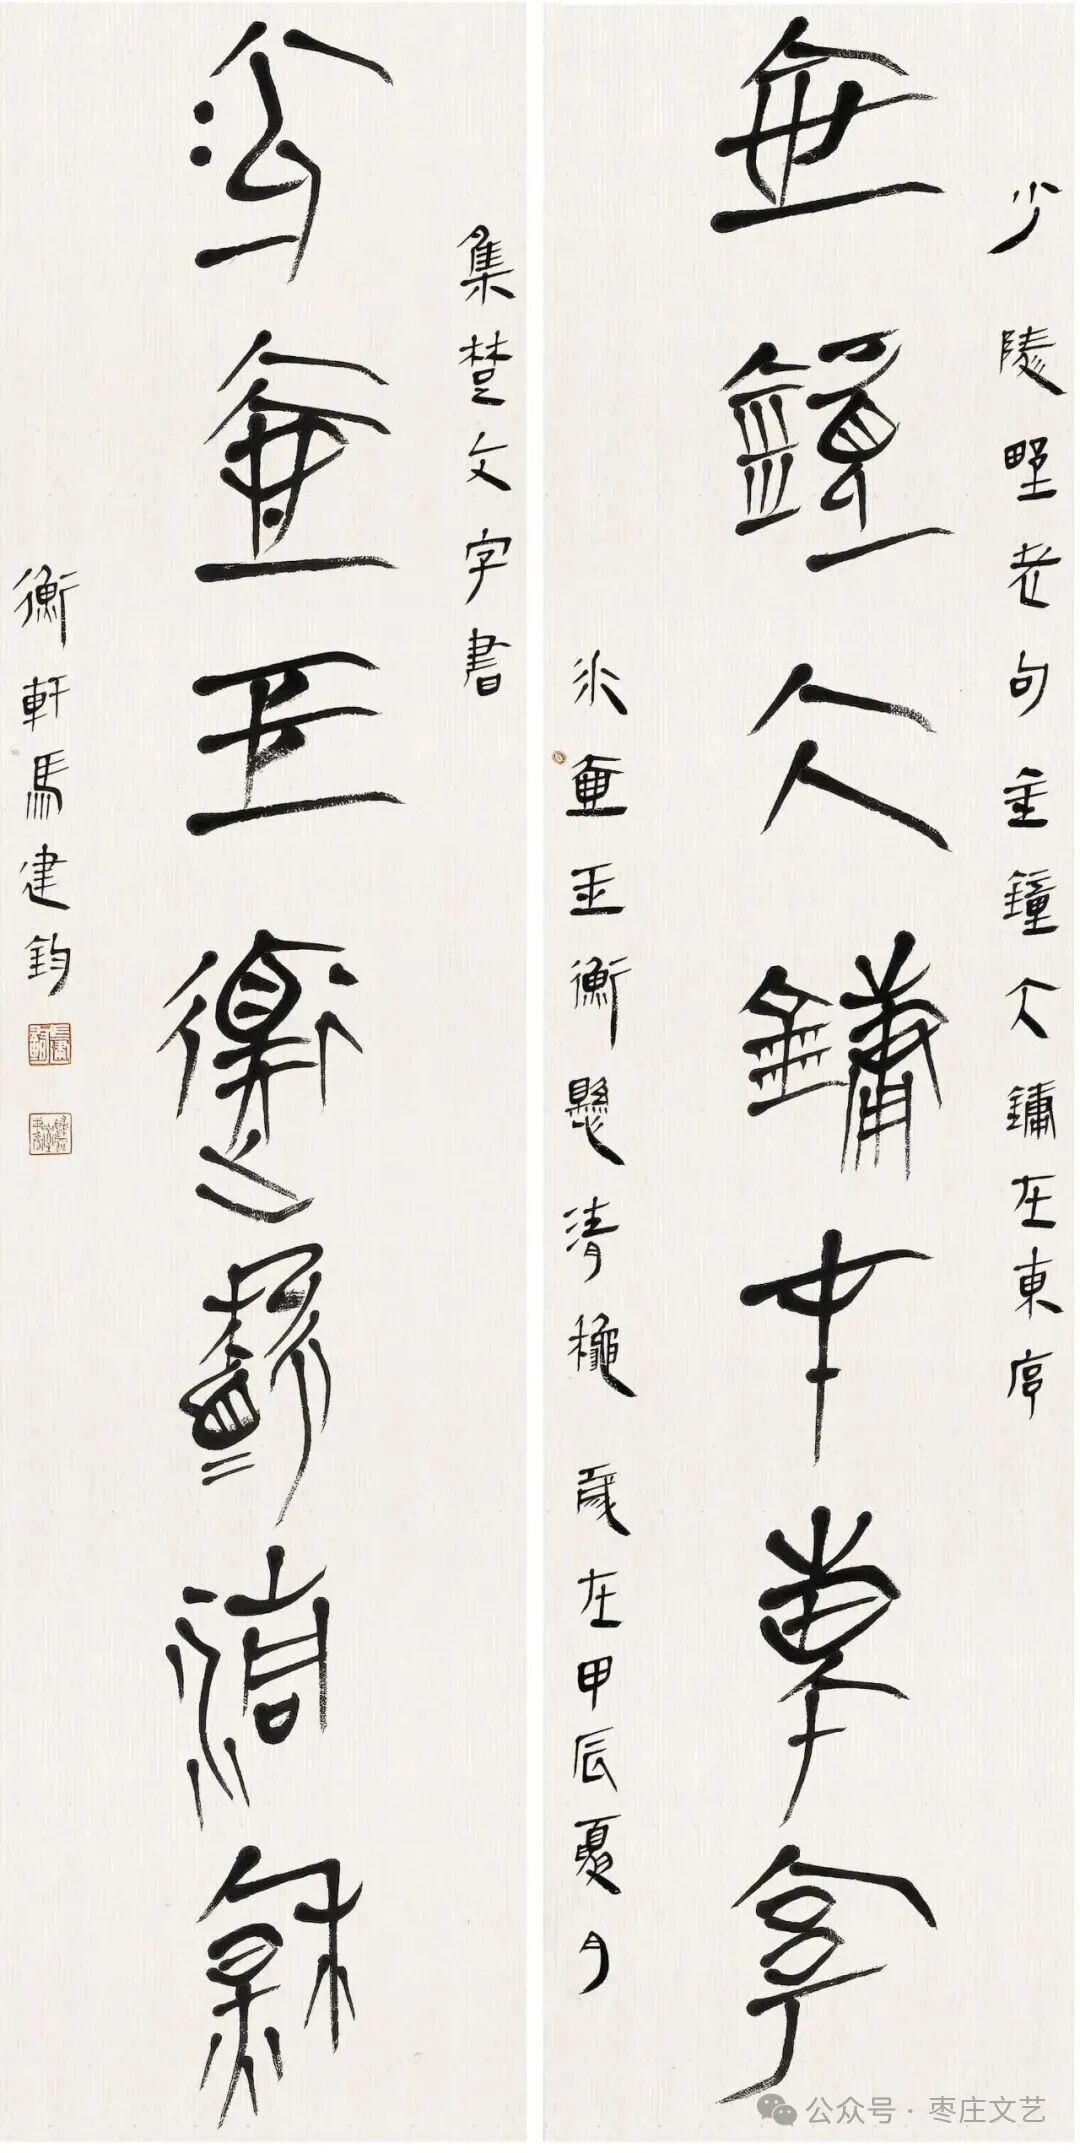 金鐘大鏞在東序
冰壺玉衡懸清秋
少陵野老句金鐘大鏞在東序
冰壺玉衡懸清穐 歲在甲辰夏月
集楚文字書
衡軒馬建鈞
公众号 · 枣庄文艺